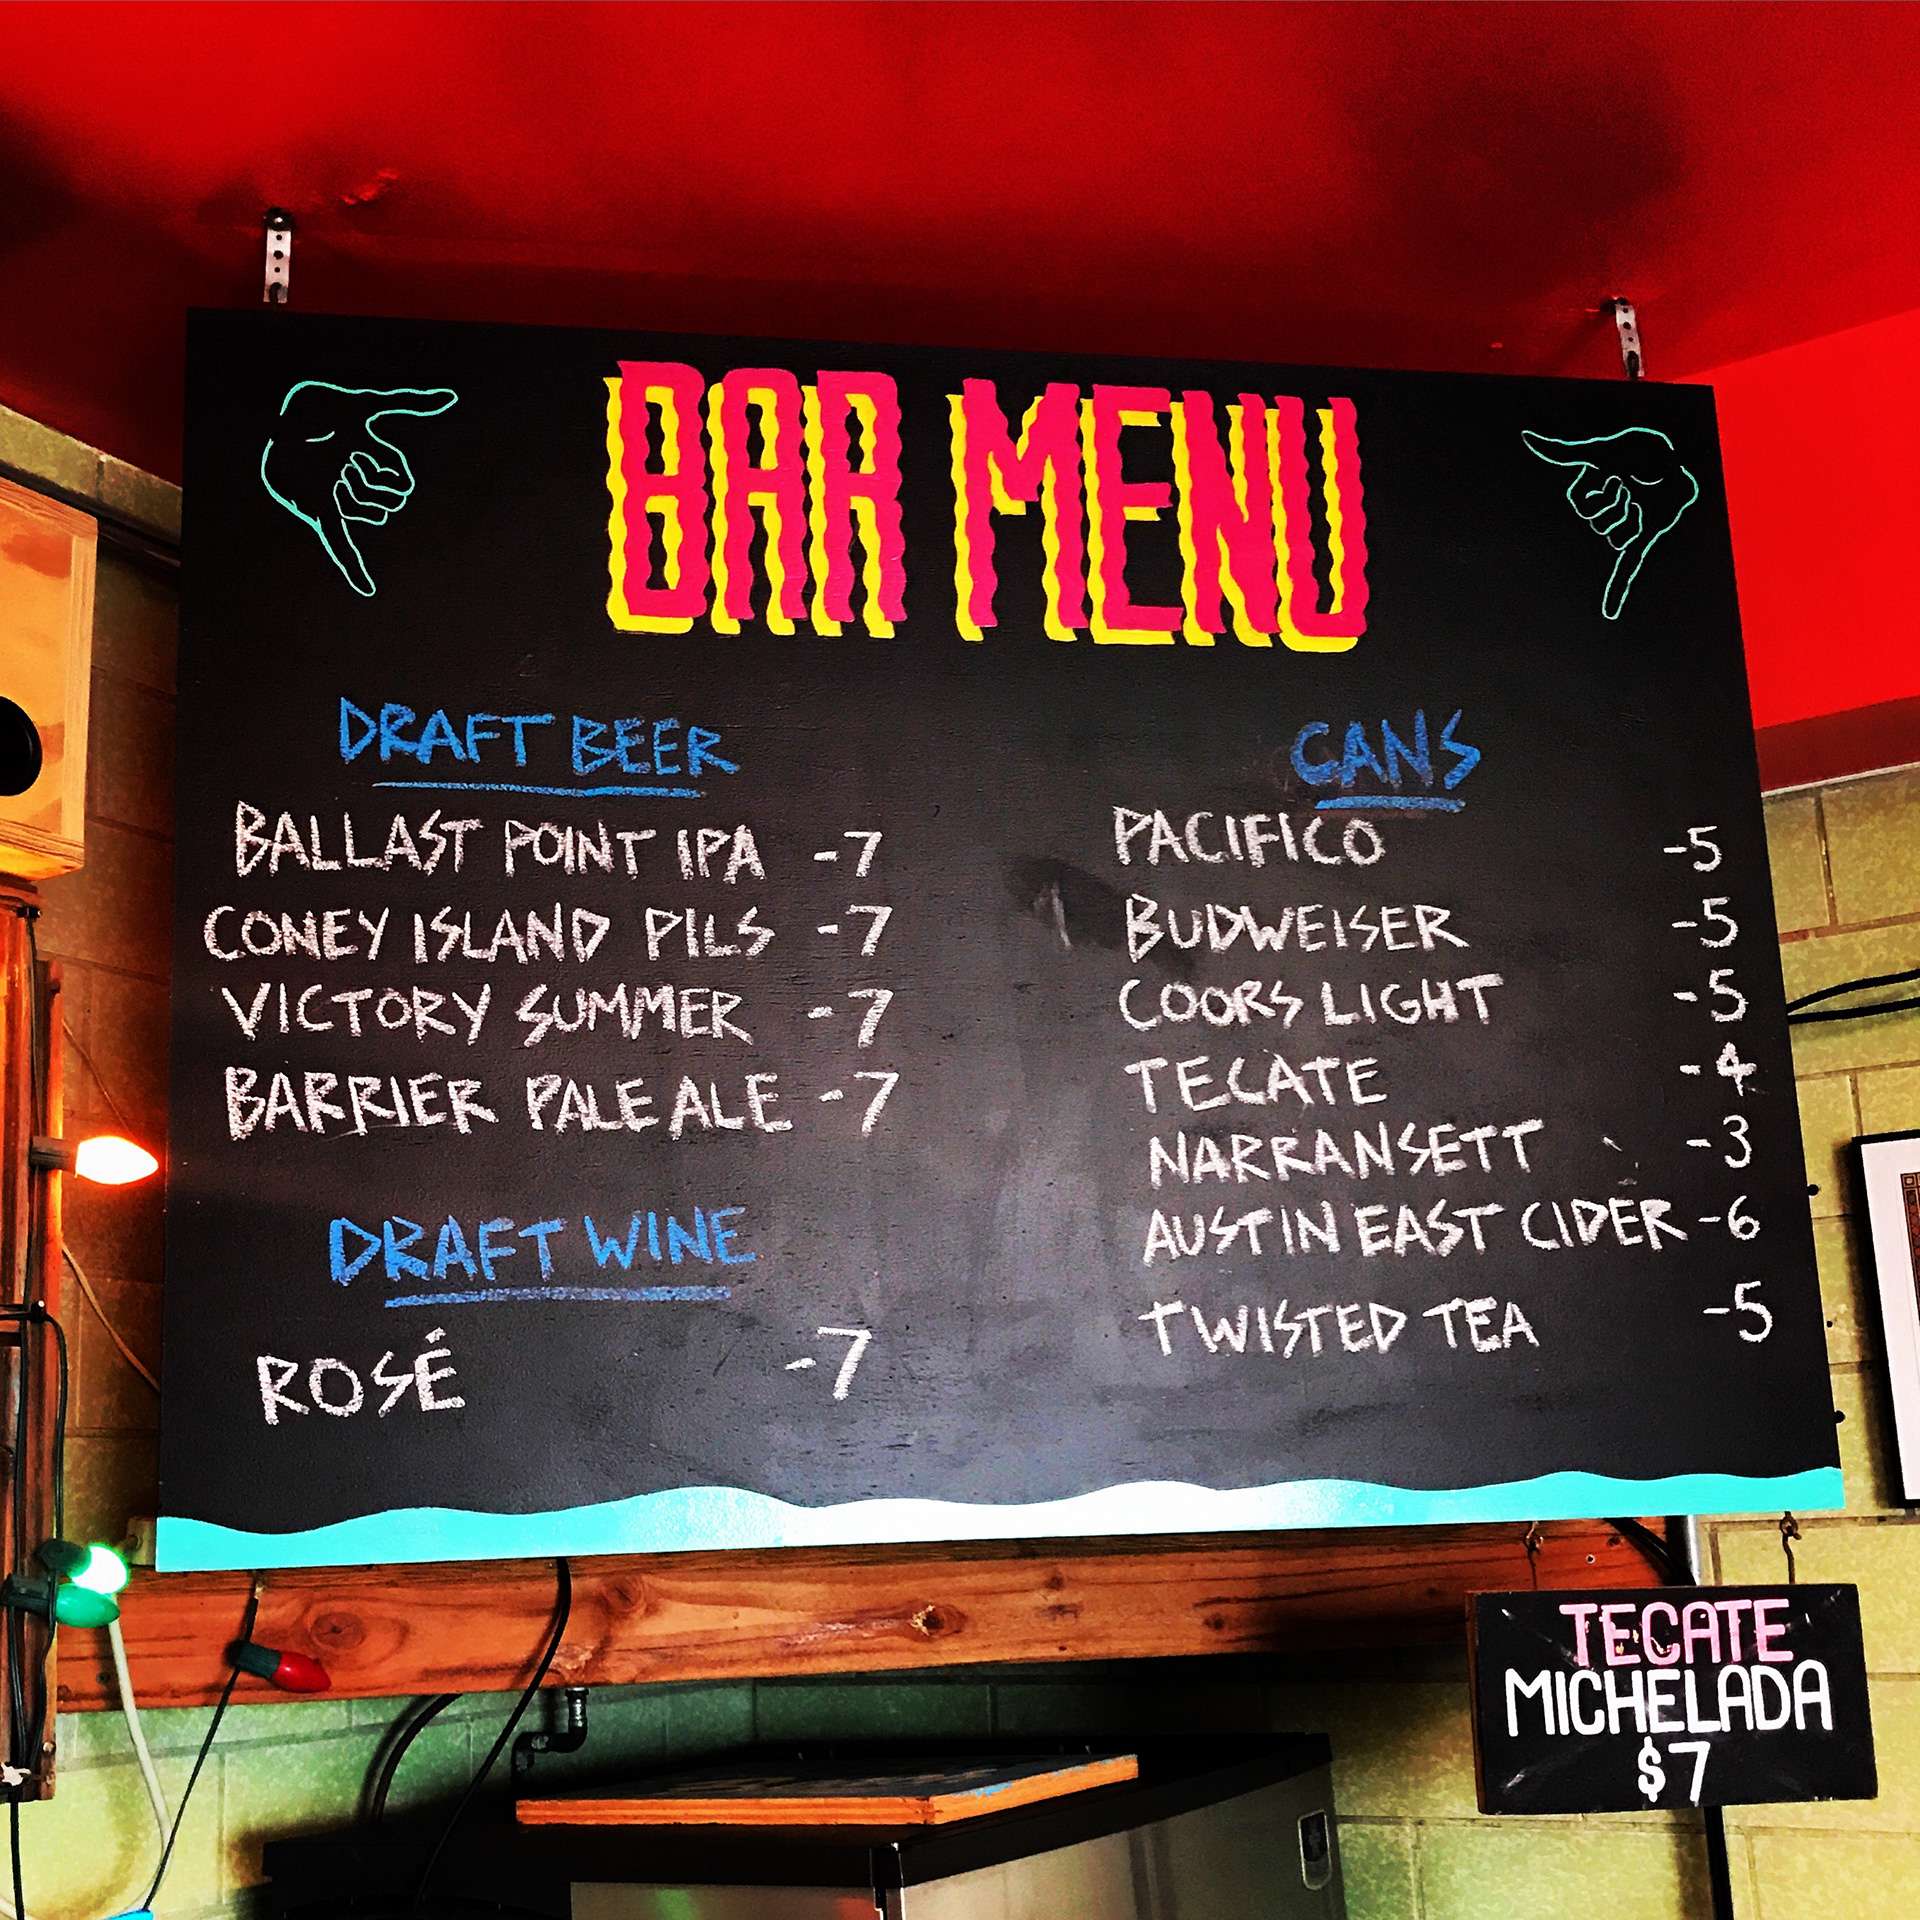 BAR MENU
DRAFT BEER
BALLAST POINT IPA -7
CONEY ISLAND PILS -7
VICTORY SUMMER -7
BARRIER PALE ALE -7
DRAFT WINE
ROSÉ -7
CANS
PACIFICO -5
BUDWEISER -5
COORS LIGHT -5
TECATE -4
NARRANSETT -3
AUSTIN EAST CIDER -6
TWISTED TEA -5
TECATE
MICHELADA
$7